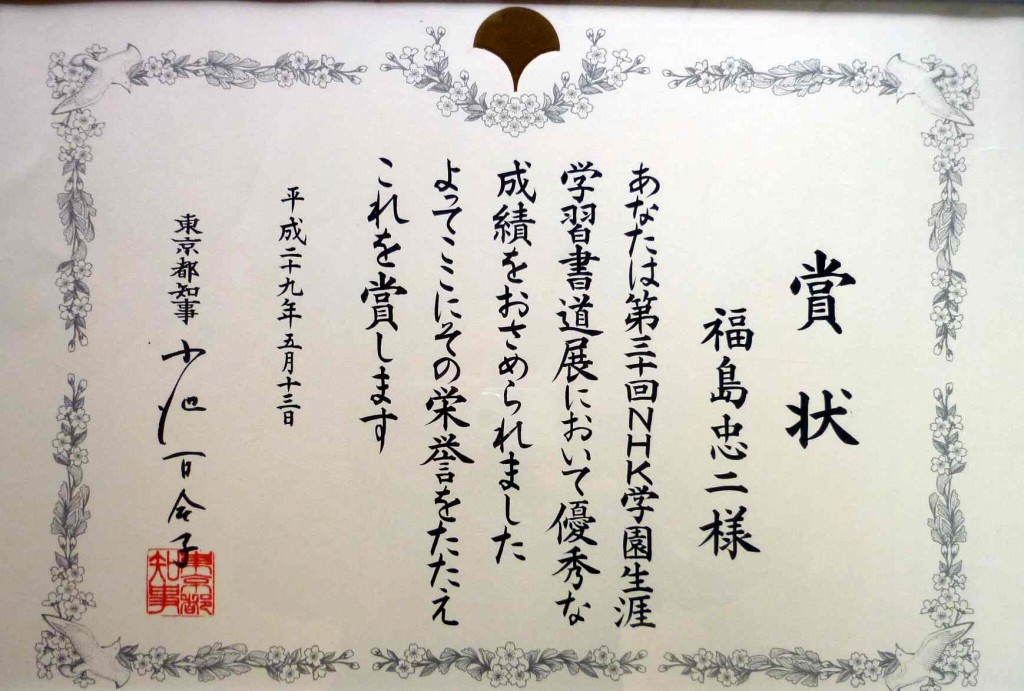 賞状
福島忠二様
あなたは第三十回NHK学園生涯
学習書道展において優秀な
成績をおさめられました
よってここにその栄誉をたたえ
これを賞します
平成二十九年五月十三日
東京都知事 小池百合子
東京都知事